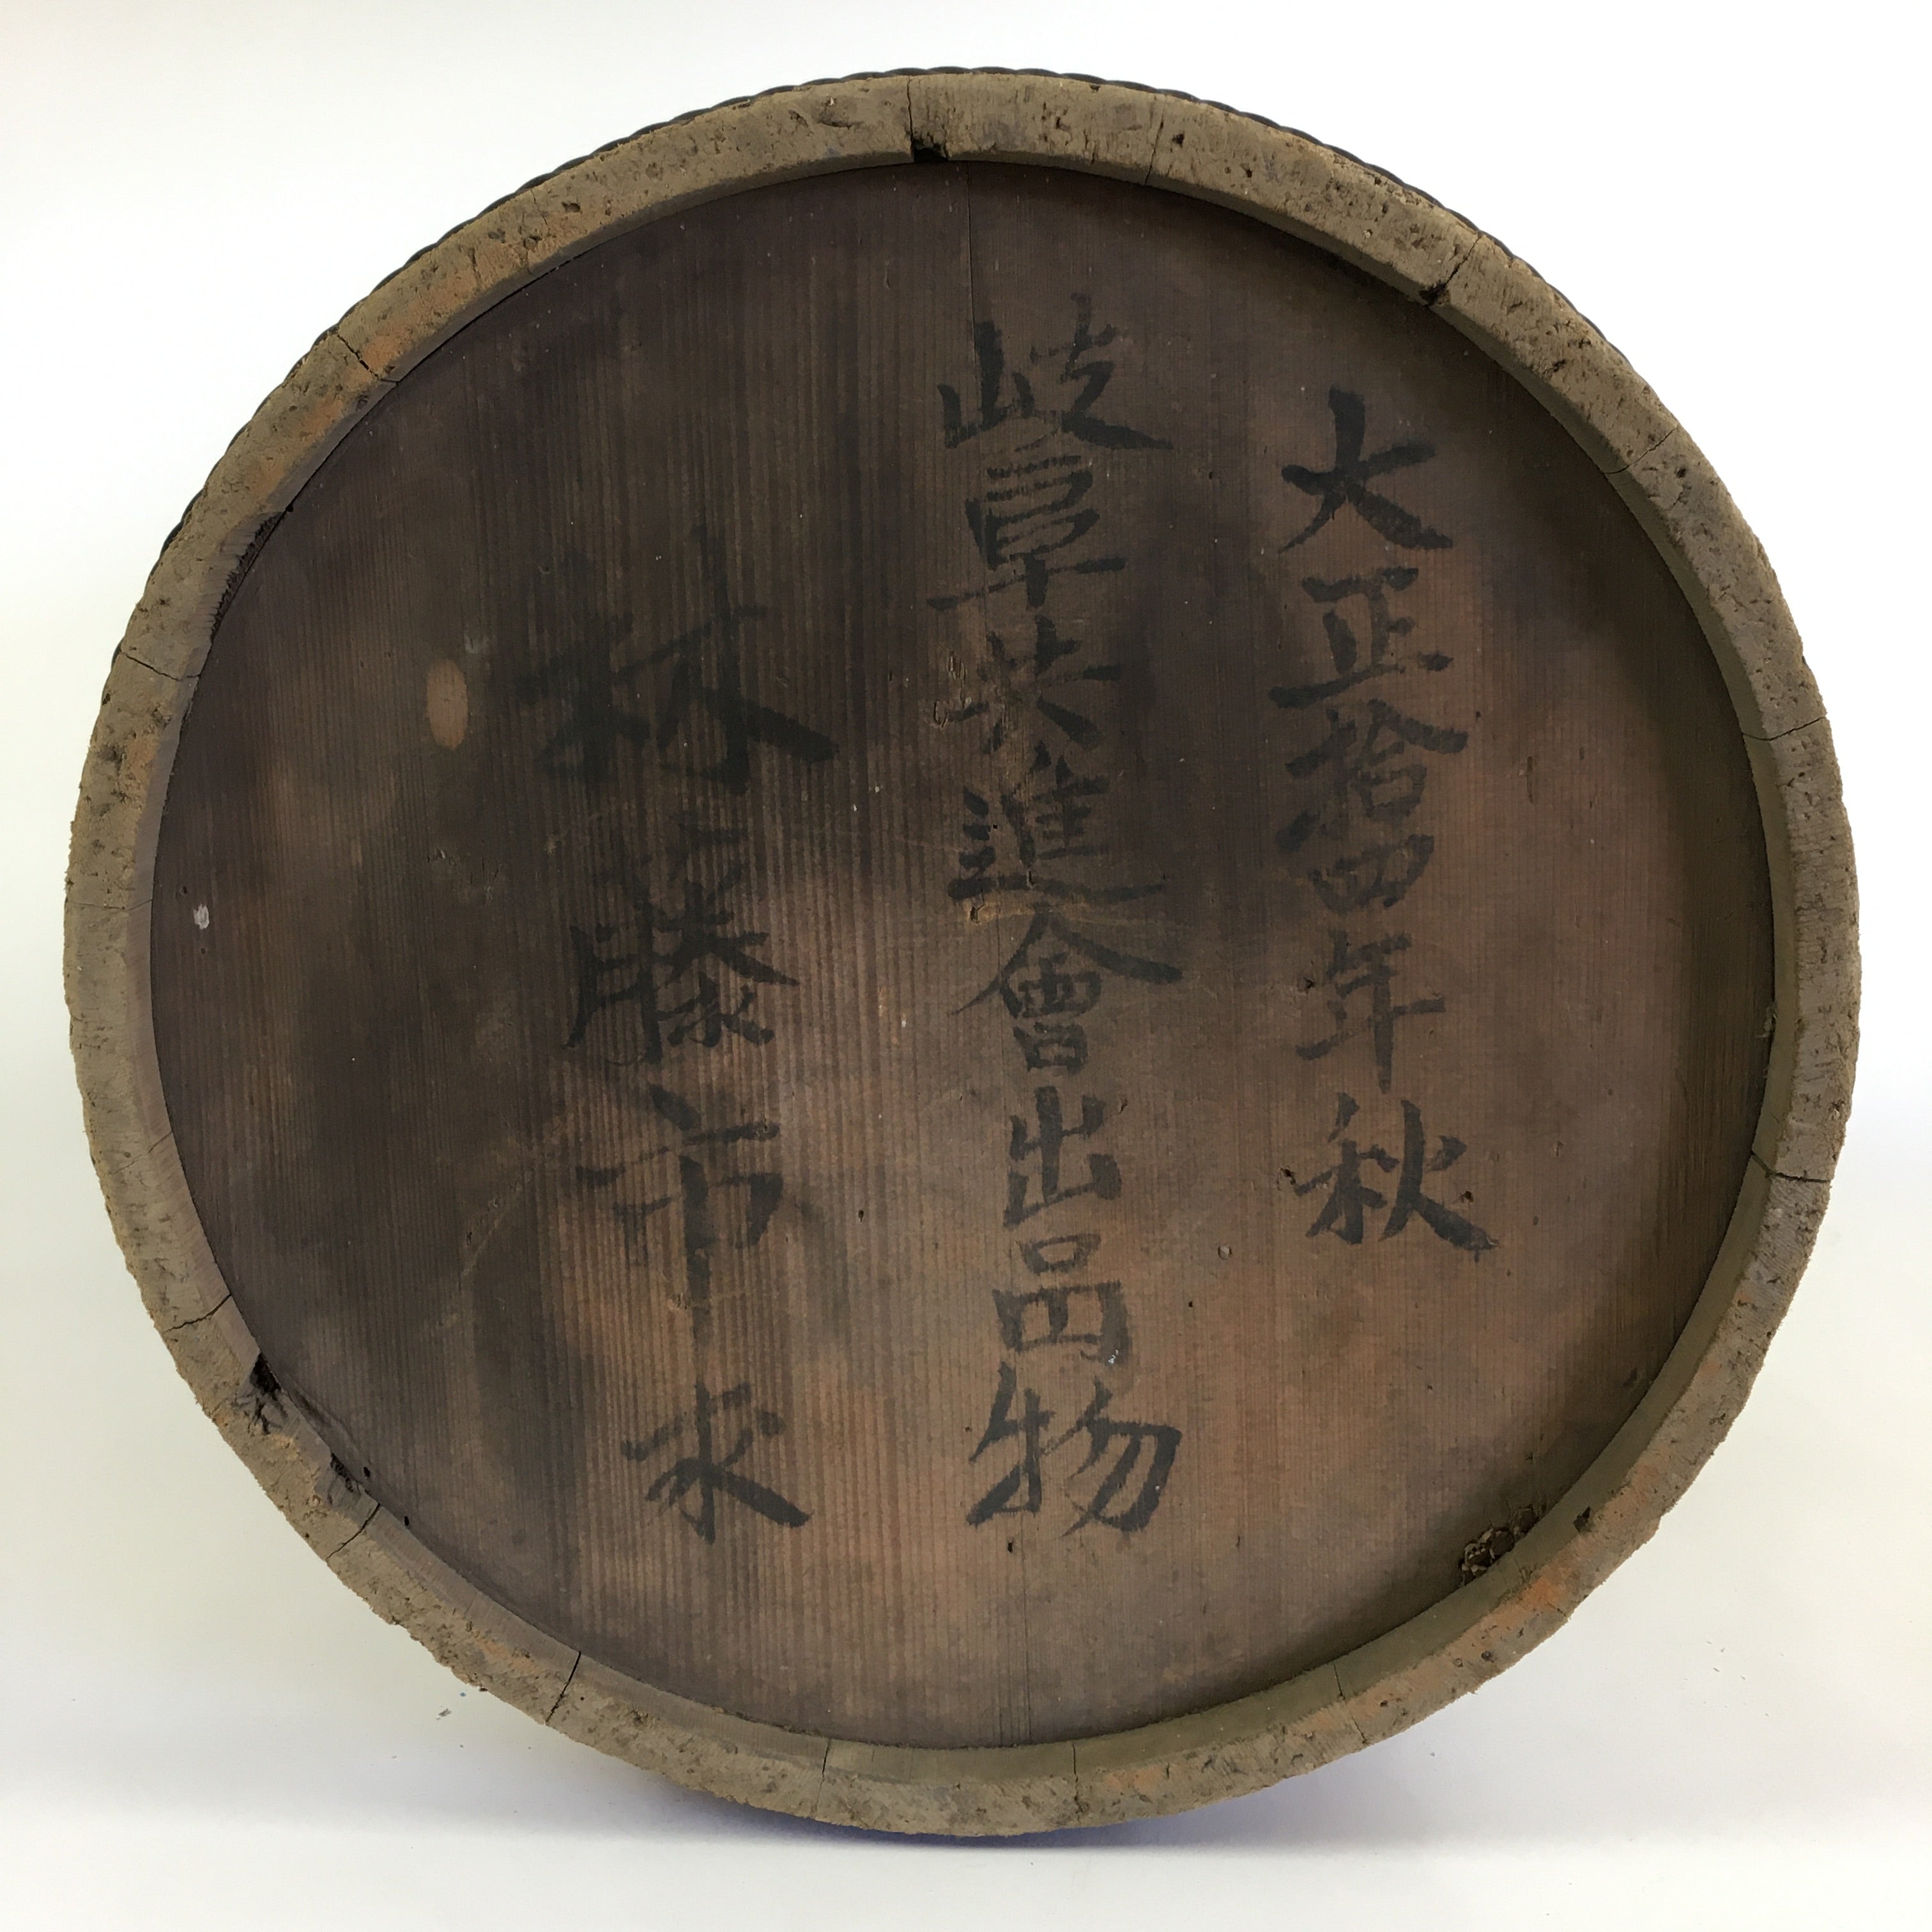 大正拾四年秋
岐阜共進會出品物
林藤市求